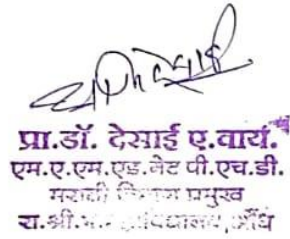 प्रा.डॉ. देसाई ए.वाय.
एम.ए.एम.एड.नेट पी.एच.डी.
मराठी विभाग प्रमुख
रा.श्री. औंध